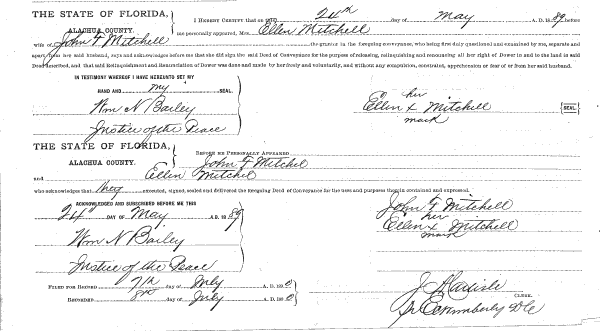 THE STATE OF FLORIDA,
ALACHUA COUNTY.
I HEREBY CERTIFY that on this 24th day of May A. D. 1889, before
me personally appeared, Mrs. Ellen Mitchell
wife of John F Mitchell the grantor in the foregoing conveyance, who being first duly questioned and examined by me, separate and
apart from her said husband, says and acknowledges before me that she did sign the said Deed of Conveyance for the purpose of releasing, relinquishing and renouncing all her right of Dower in and to the land in said
Deed described, and that said Relinquishment and Renunciation of Dower was done and made by her freely and voluntarily, and without any compulsion, constraint, apprehension or fear of or from her said husband.
IN TESTIMONY WHEREOF I HAVE HEREUNTO SET MY
HAND AND my SEAL.
Wm N Bailey
Justice of the Peace
her
Ellen x Mitchell SEAL
mark
THE STATE OF FLORIDA,
ALACHUA COUNTY.
BEFORE ME PERSONALLY APPEARED
John F Mitchel
and Ellen Mitchel
who acknowledges that they executed, signed, sealed and delivered the foregoing Deed of Conveyance for the uses and purposes therein contained and expressed.
ACKNOWLEDGED AND SUBSCRIBED BEFORE ME THIS
24th DAY OF May A. D. 1889
Wm N Bailey
Justice of the Peace
John F Mitchell
her
Ellen x Mitchell
mark
FILED FOR RECORD 7th day of July A. D. 1890
RECORDED 8th day of July A. D. 1890
J A Carlisle
CLERK.